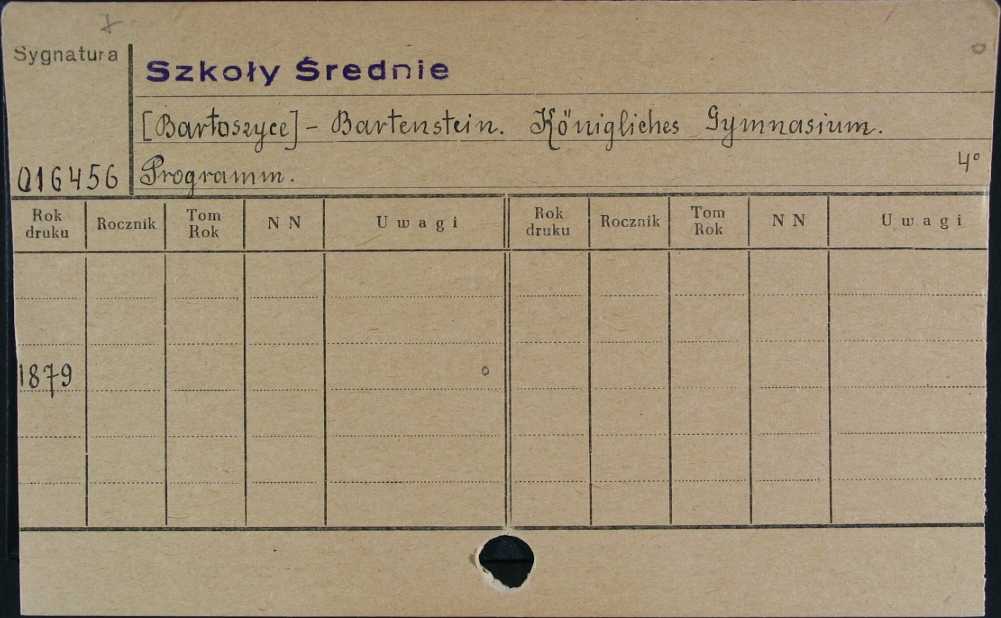 Sygnatura
Szkoły Średnie
[Bartoszyce] - Bartenstein. Königliches Gymnasium.
016456
Programm.
4°
Rok druku Rocznik Tom Rok N N Uwagi Rok druku Rocznik Tom Rok N N Uwagi
1879